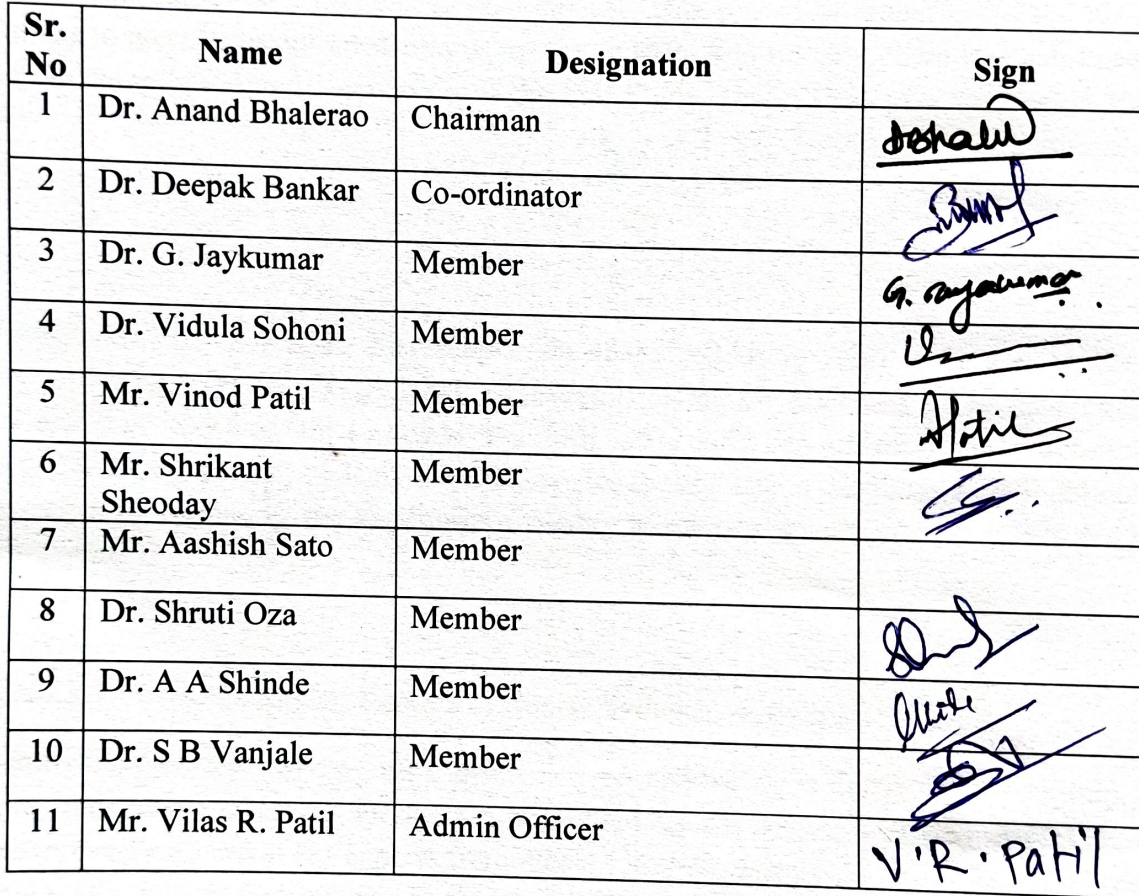 Sr. No Name Designation Sign
1 Dr. Anand Bhalerao Chairman
2 Dr. Deepak Bankar Co-ordinator
3 Dr. G. Jaykumar Member
4 Dr. Vidula Sohoni Member
5 Mr. Vinod Patil Member
6 Mr. Shrikant Sheoday Member
7 Mr. Aashish Sato Member
8 Dr. Shruti Oza Member
9 Dr. A A Shinde Member
10 Dr. S B Vanjale Member
11 Mr. Vilas R. Patil Admin Officer V.R. Patil